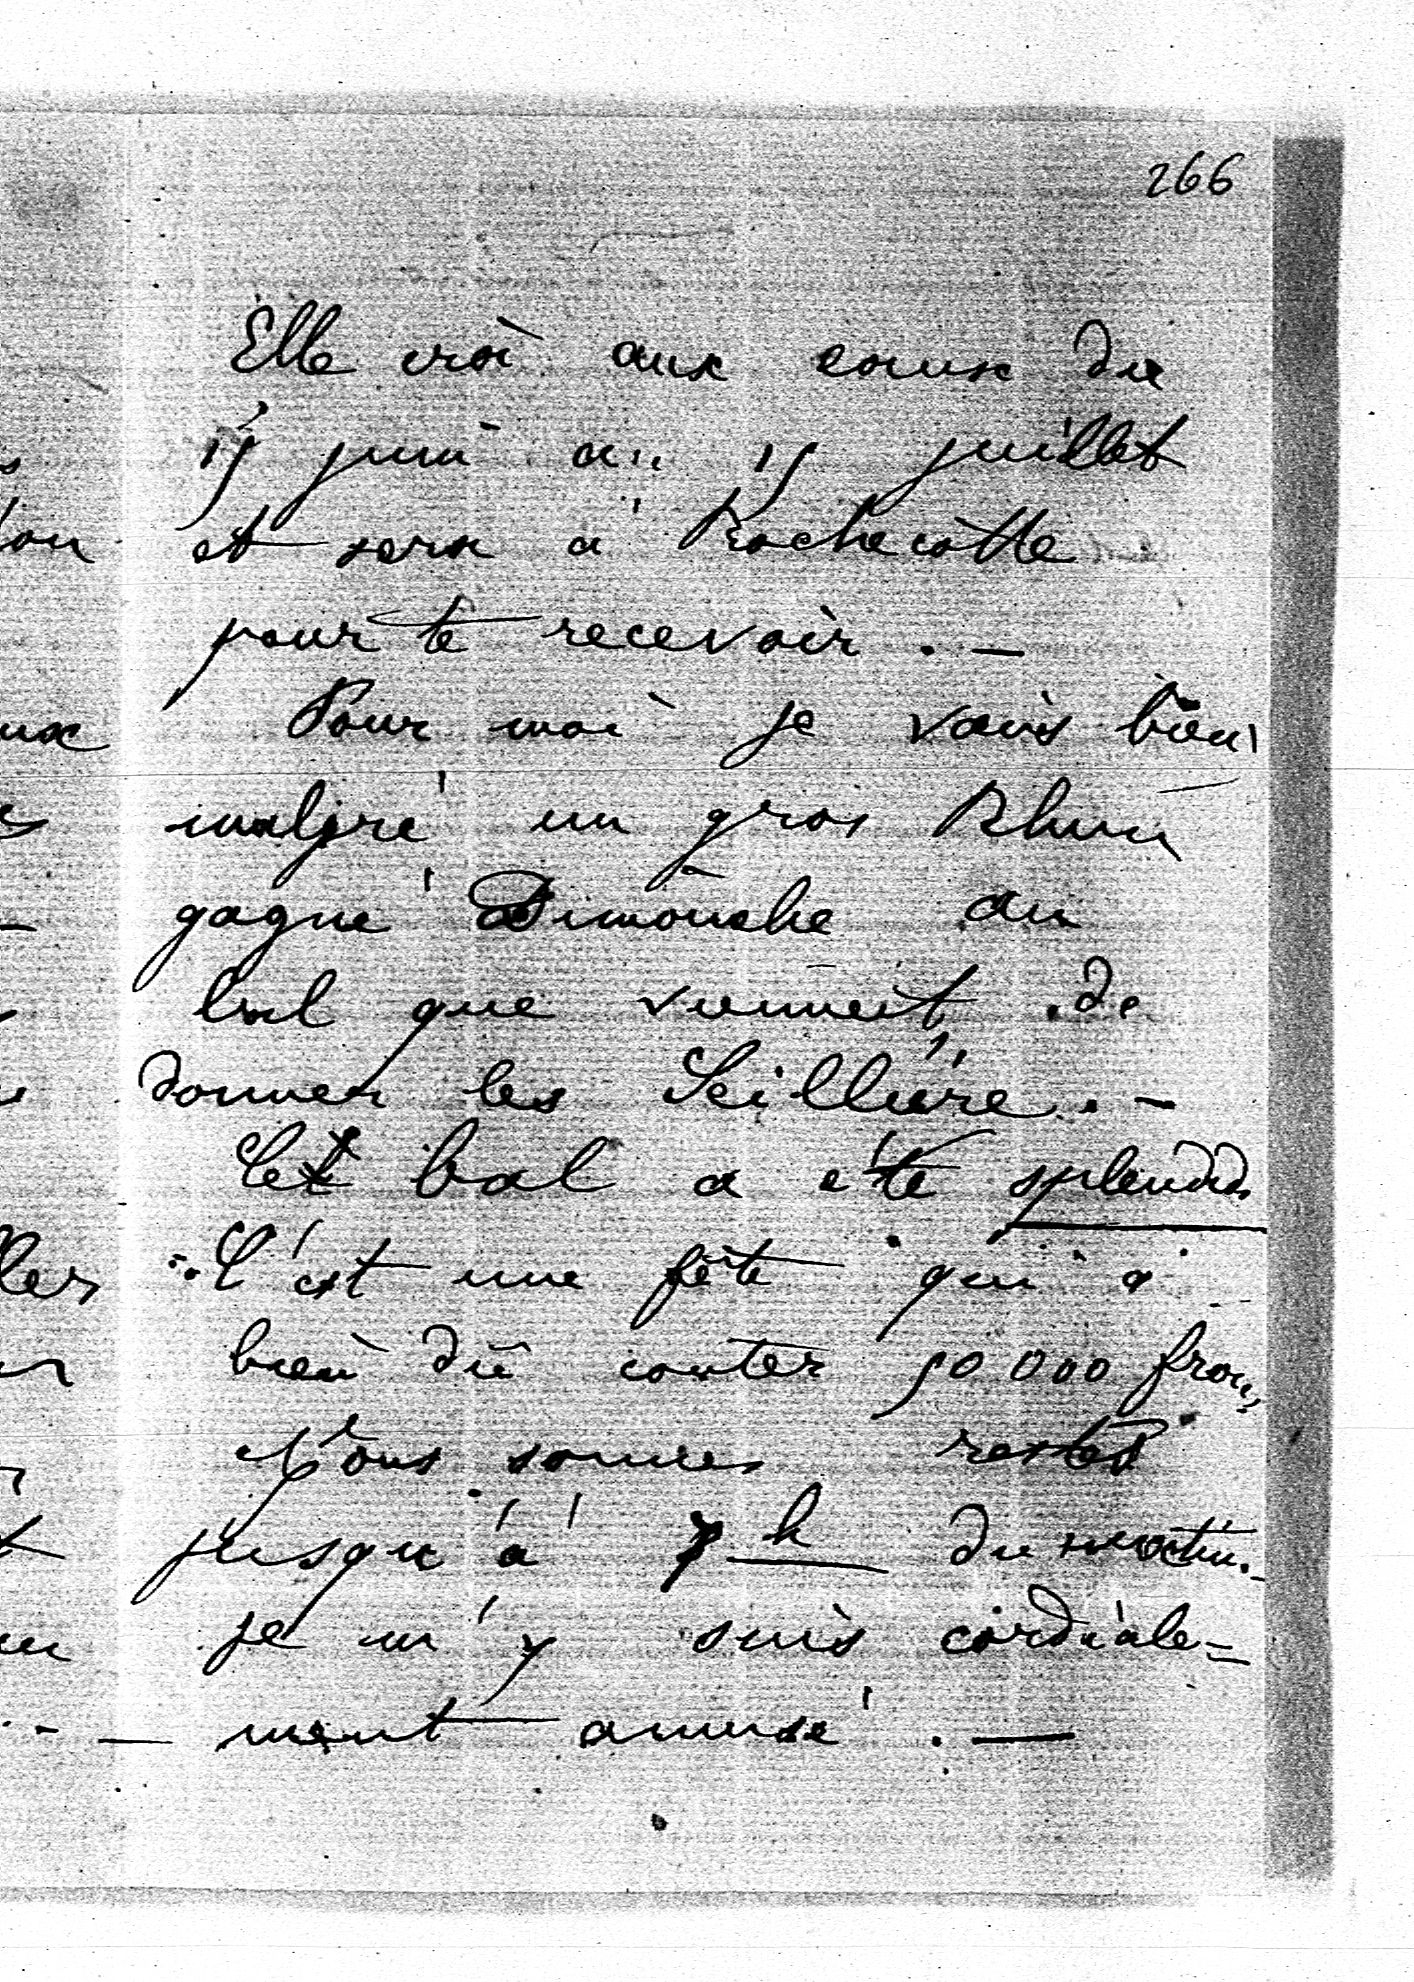 266
Elle ira aux eaux du
15 juin au 15 juillet
et sera à Rochecotte
pour te recevoir. —
Pour moi je vais bien
malgré un gros Rhume
gagné Dimanche au
bal que viennent de
donner les Seillière. —
Cet bal a été splendide
C'est une fête qui a
bien dû couter 50 000 francs
Nous sommes restés
jusqu'à 7 h du matin.
je m'y suis cordiale=
ment amusé. —